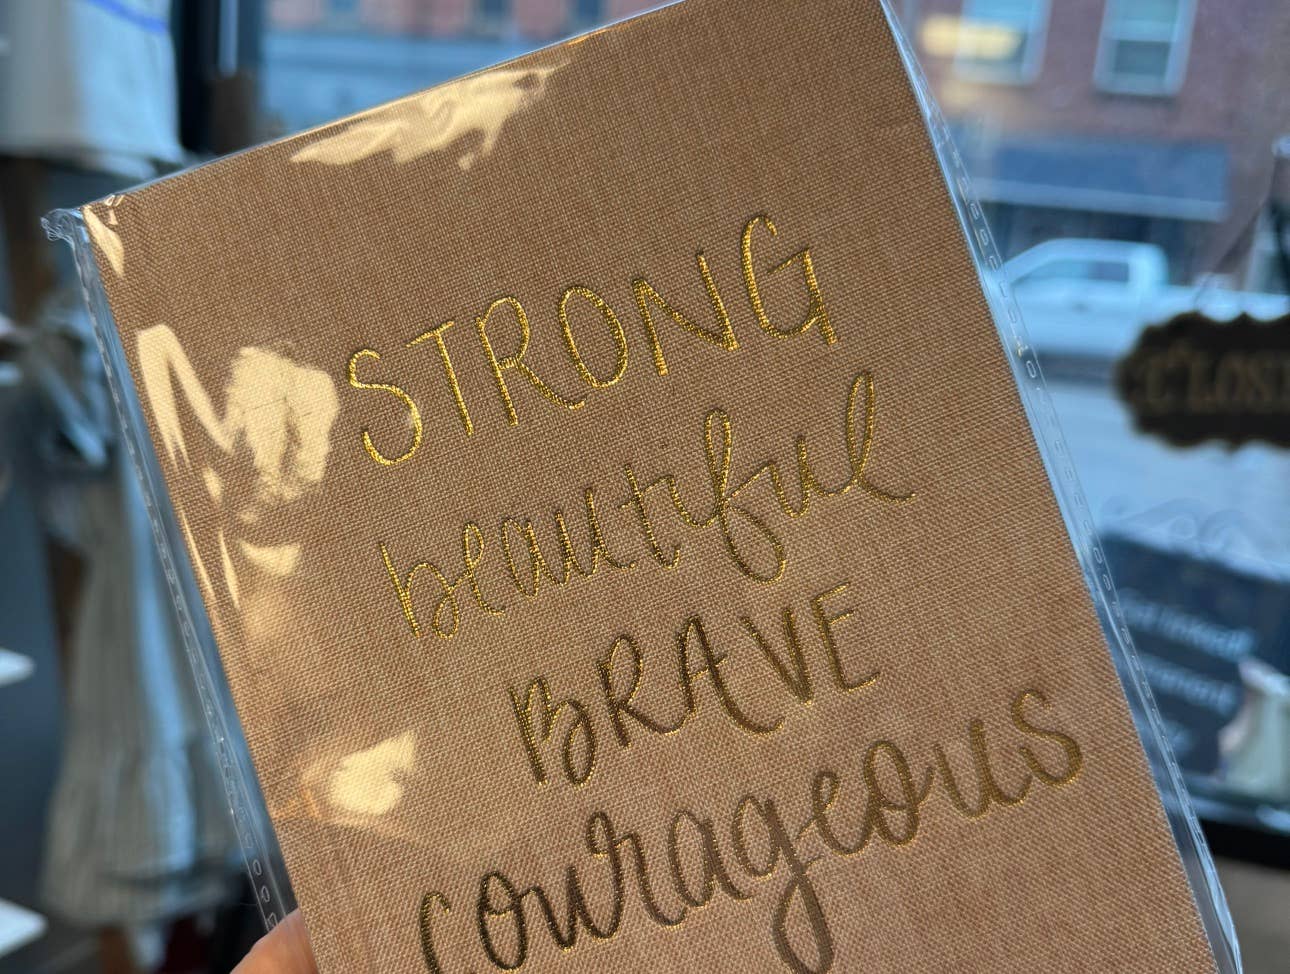 STRONG
beautiful
BRAVE
courageous